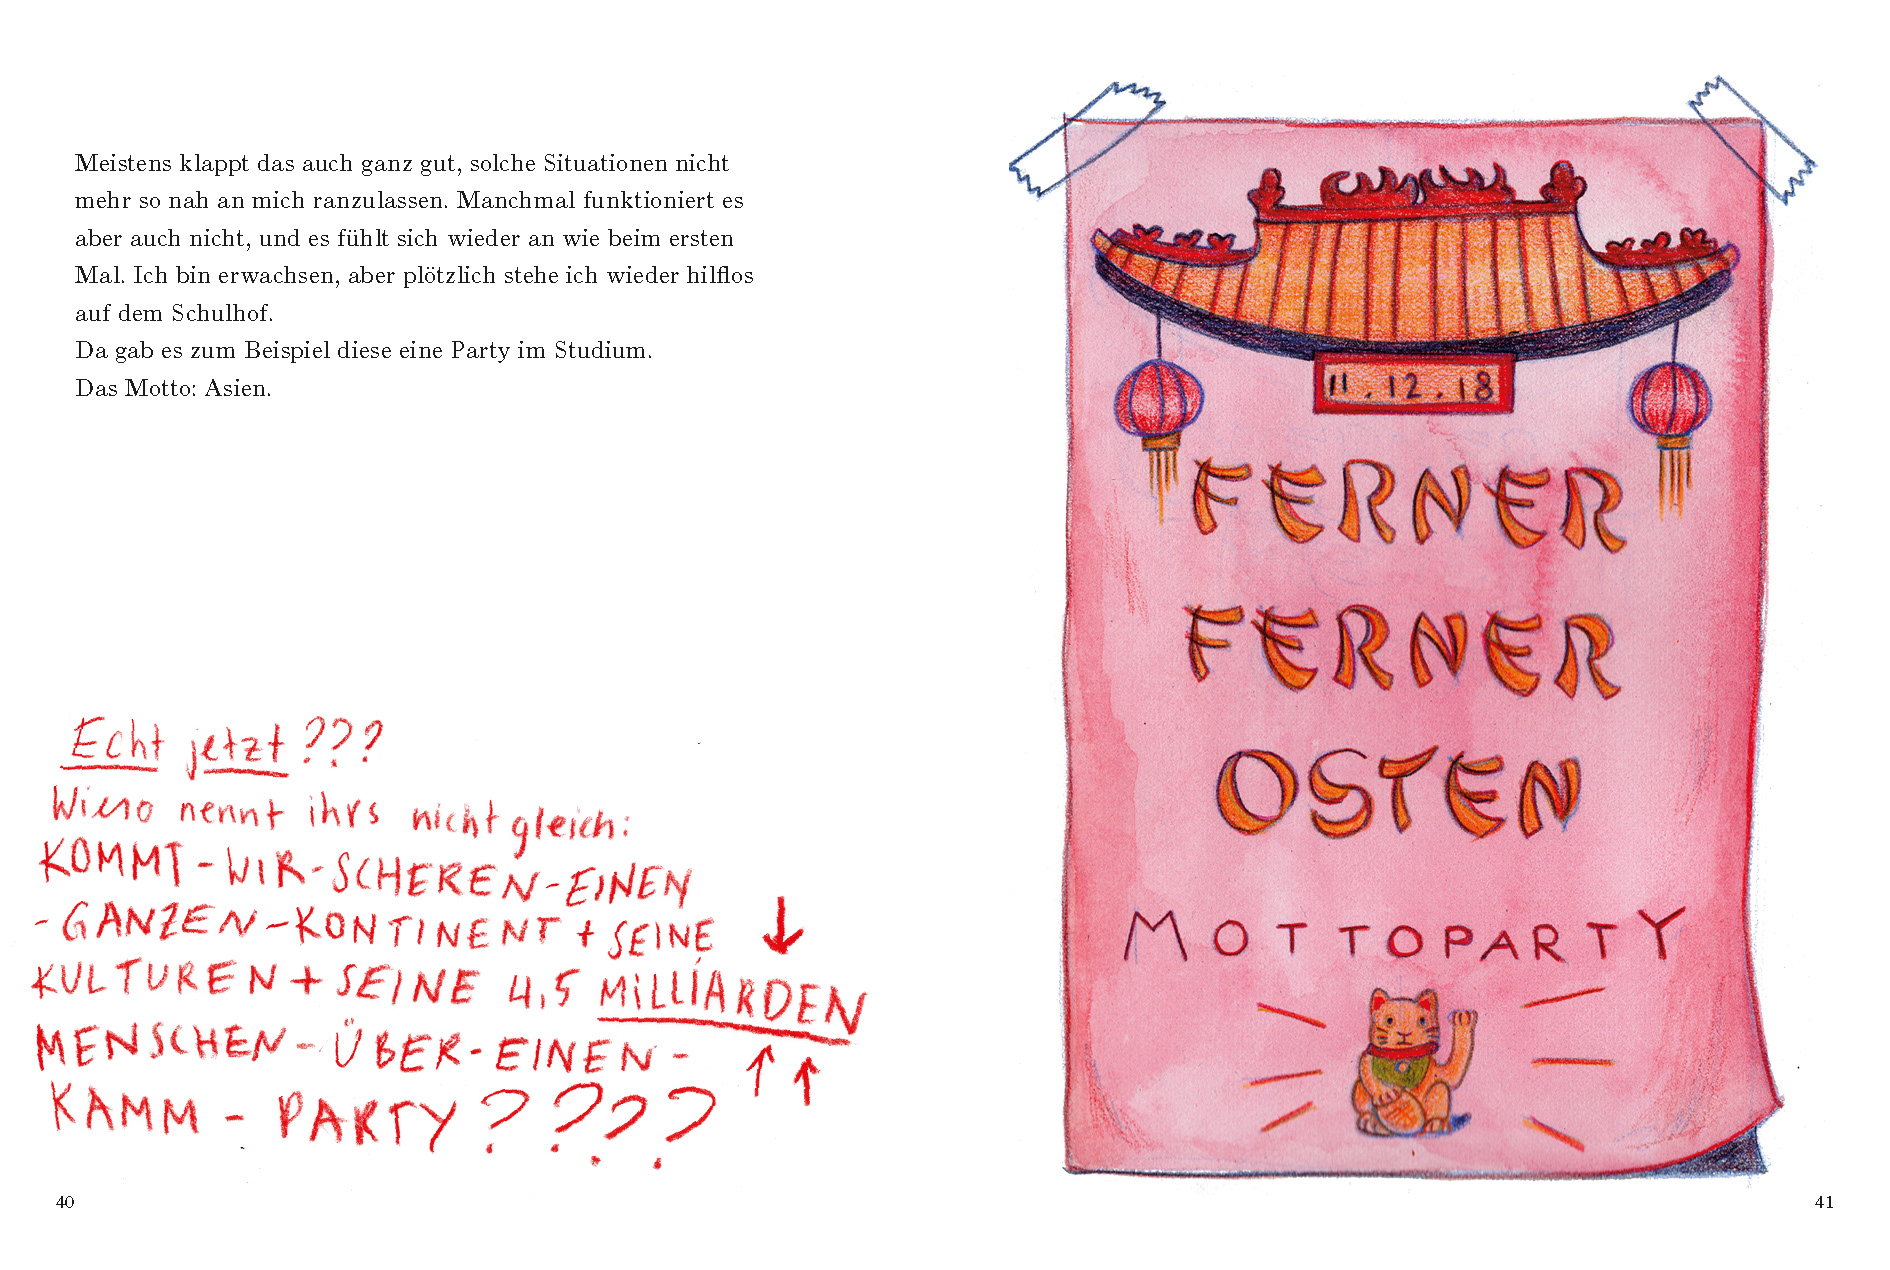 Meistens klappt das auch ganz gut, solche Situationen nicht
mehr so nah an mich ranzulassen. Manchmal funktioniert es
aber auch nicht, und es fühlt sich wieder an wie beim ersten
Mal. Ich bin erwachsen, aber plötzlich stehe ich wieder hilflos
auf dem Schulhof.
Da gab es zum Beispiel diese eine Party im Studium.
Das Motto: Asien.
Echt jetzt???
Wieso nennt ihrs nicht gleich:
KOMMT-WIR-SCHEREN-EINEN
-GANZEN-KONTINENT + SEINE
KULTUREN + SEINE 4,5 MILLIARDEN
MENSCHEN-ÜBER-EINEN-
KAMM-PARTY????
40
11.12.18
FERNER
FERNER
OSTEN
MOTTOPARTY
41